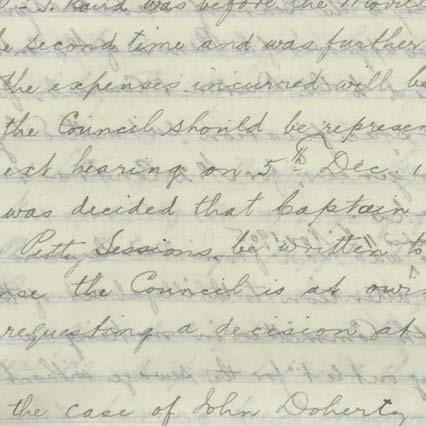 J. Baird was before the Moville
second time and was further
the expenses incurred will be
the Council should be represen
ext hearing on 5th Dec. 1
was decided that Captain
Petty Sessions, be written to
nse the Council is at owi
requesting a decision at
the case of John Doherty